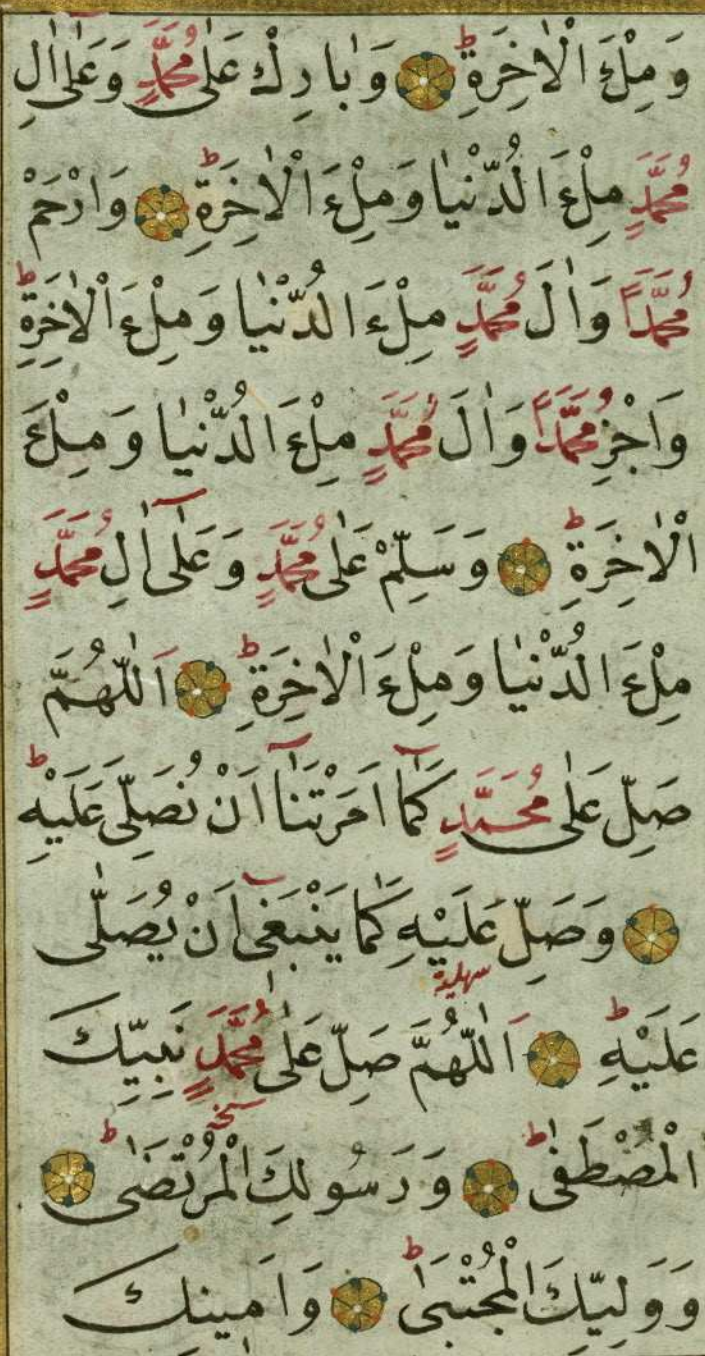 وَمِلْءَ الْاٰخِرَةِ ط وَبَارِكْ عَلٰى مُحَمَّدٍ وَعَلٰٓى اٰلِ
مُحَمَّدٍ مِلْءَ الدُّنْيَا وَمِلْءَ الْاٰخِرَةِ ط وَارْحَمْ
مُحَمَّدًا وَاٰلَ مُحَمَّدٍ مِلْءَ الدُّنْيَا وَمِلْءَ الْاٰخِرَةِ ط
وَاجْزِ مُحَمَّدًا وَاٰلَ مُحَمَّدٍ مِلْءَ الدُّنْيَا وَمِلْءَ
الْاٰخِرَةِ ط وَسَلِّمْ عَلٰى مُحَمَّدٍ وَعَلٰٓى اٰلِ مُحَمَّدٍ
مِلْءَ الدُّنْيَا وَمِلْءَ الْاٰخِرَةِ ط اَللّٰهُمَّ
صَلِّ عَلٰى مُحَمَّدٍ كَمَٓا اَمَرْتَنَٓا اَنْ نُصَلِّىَ عَلَيْهِ ط
وَصَلِّ عَلَيْهِ كَمَا يَنْبَغٓى اَنْ يُصَلّٰى
سهلية
عَلَيْهِ ط اَللّٰهُمَّ صَلِّ عَلٰى مُحَمَّدٍ نَبِيِّكَ
الْمُصْطَفٰى ط وَرَسُولِكَ الْمُرْتَضٰى ط
وَوَلِيِّكَ الْمُجْتَبٰى ط وَاَمِينِكَ